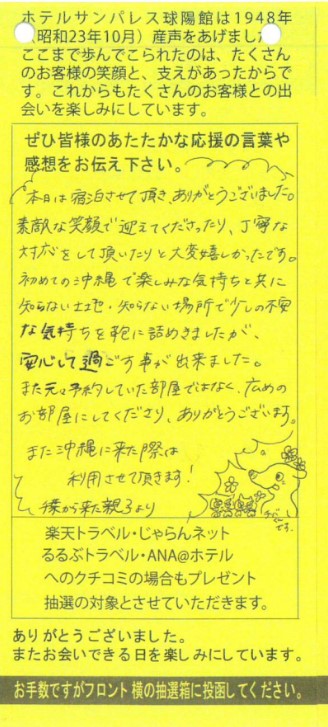 ホテルサンパレス球陽館は1948年
（昭和23年10月）産声をあげました
ここまで歩んでこられたのは、たくさん
のお客様の笑顔と、支えがあったからで
す。これからもたくさんのお客様との出
会いを楽しみにしています。
ぜひ皆様のあたたかな応援の言葉や
感想をお伝え下さい。
本日は宿泊させて頂き、ありがとうございました。
素敵な笑顔で迎えてくださったり、丁寧な
対応をして頂いたりと大変嬉しかったです。
初めての沖縄で楽しみな気持ちと共に
知らない土地・知らない場所で少しの不安
な気持ちを鞄に詰めきましたが、
安心して過ごす事が出来ました。
また元々予約していた部屋ではなく、広めの
お部屋にしてくださり、ありがとうございます。
また沖縄に来た際は
利用させて頂きます!
から来た親子より
です。
楽天トラベル・じゃらんネット
るるぶトラベル・ANA@ホテル
へのクチコミの場合もプレゼント
抽選の対象とさせていただきます。
ありがとうございました。
またお会いできる日を楽しみにしています。
お手数ですがフロント横の抽選箱に投函してください。